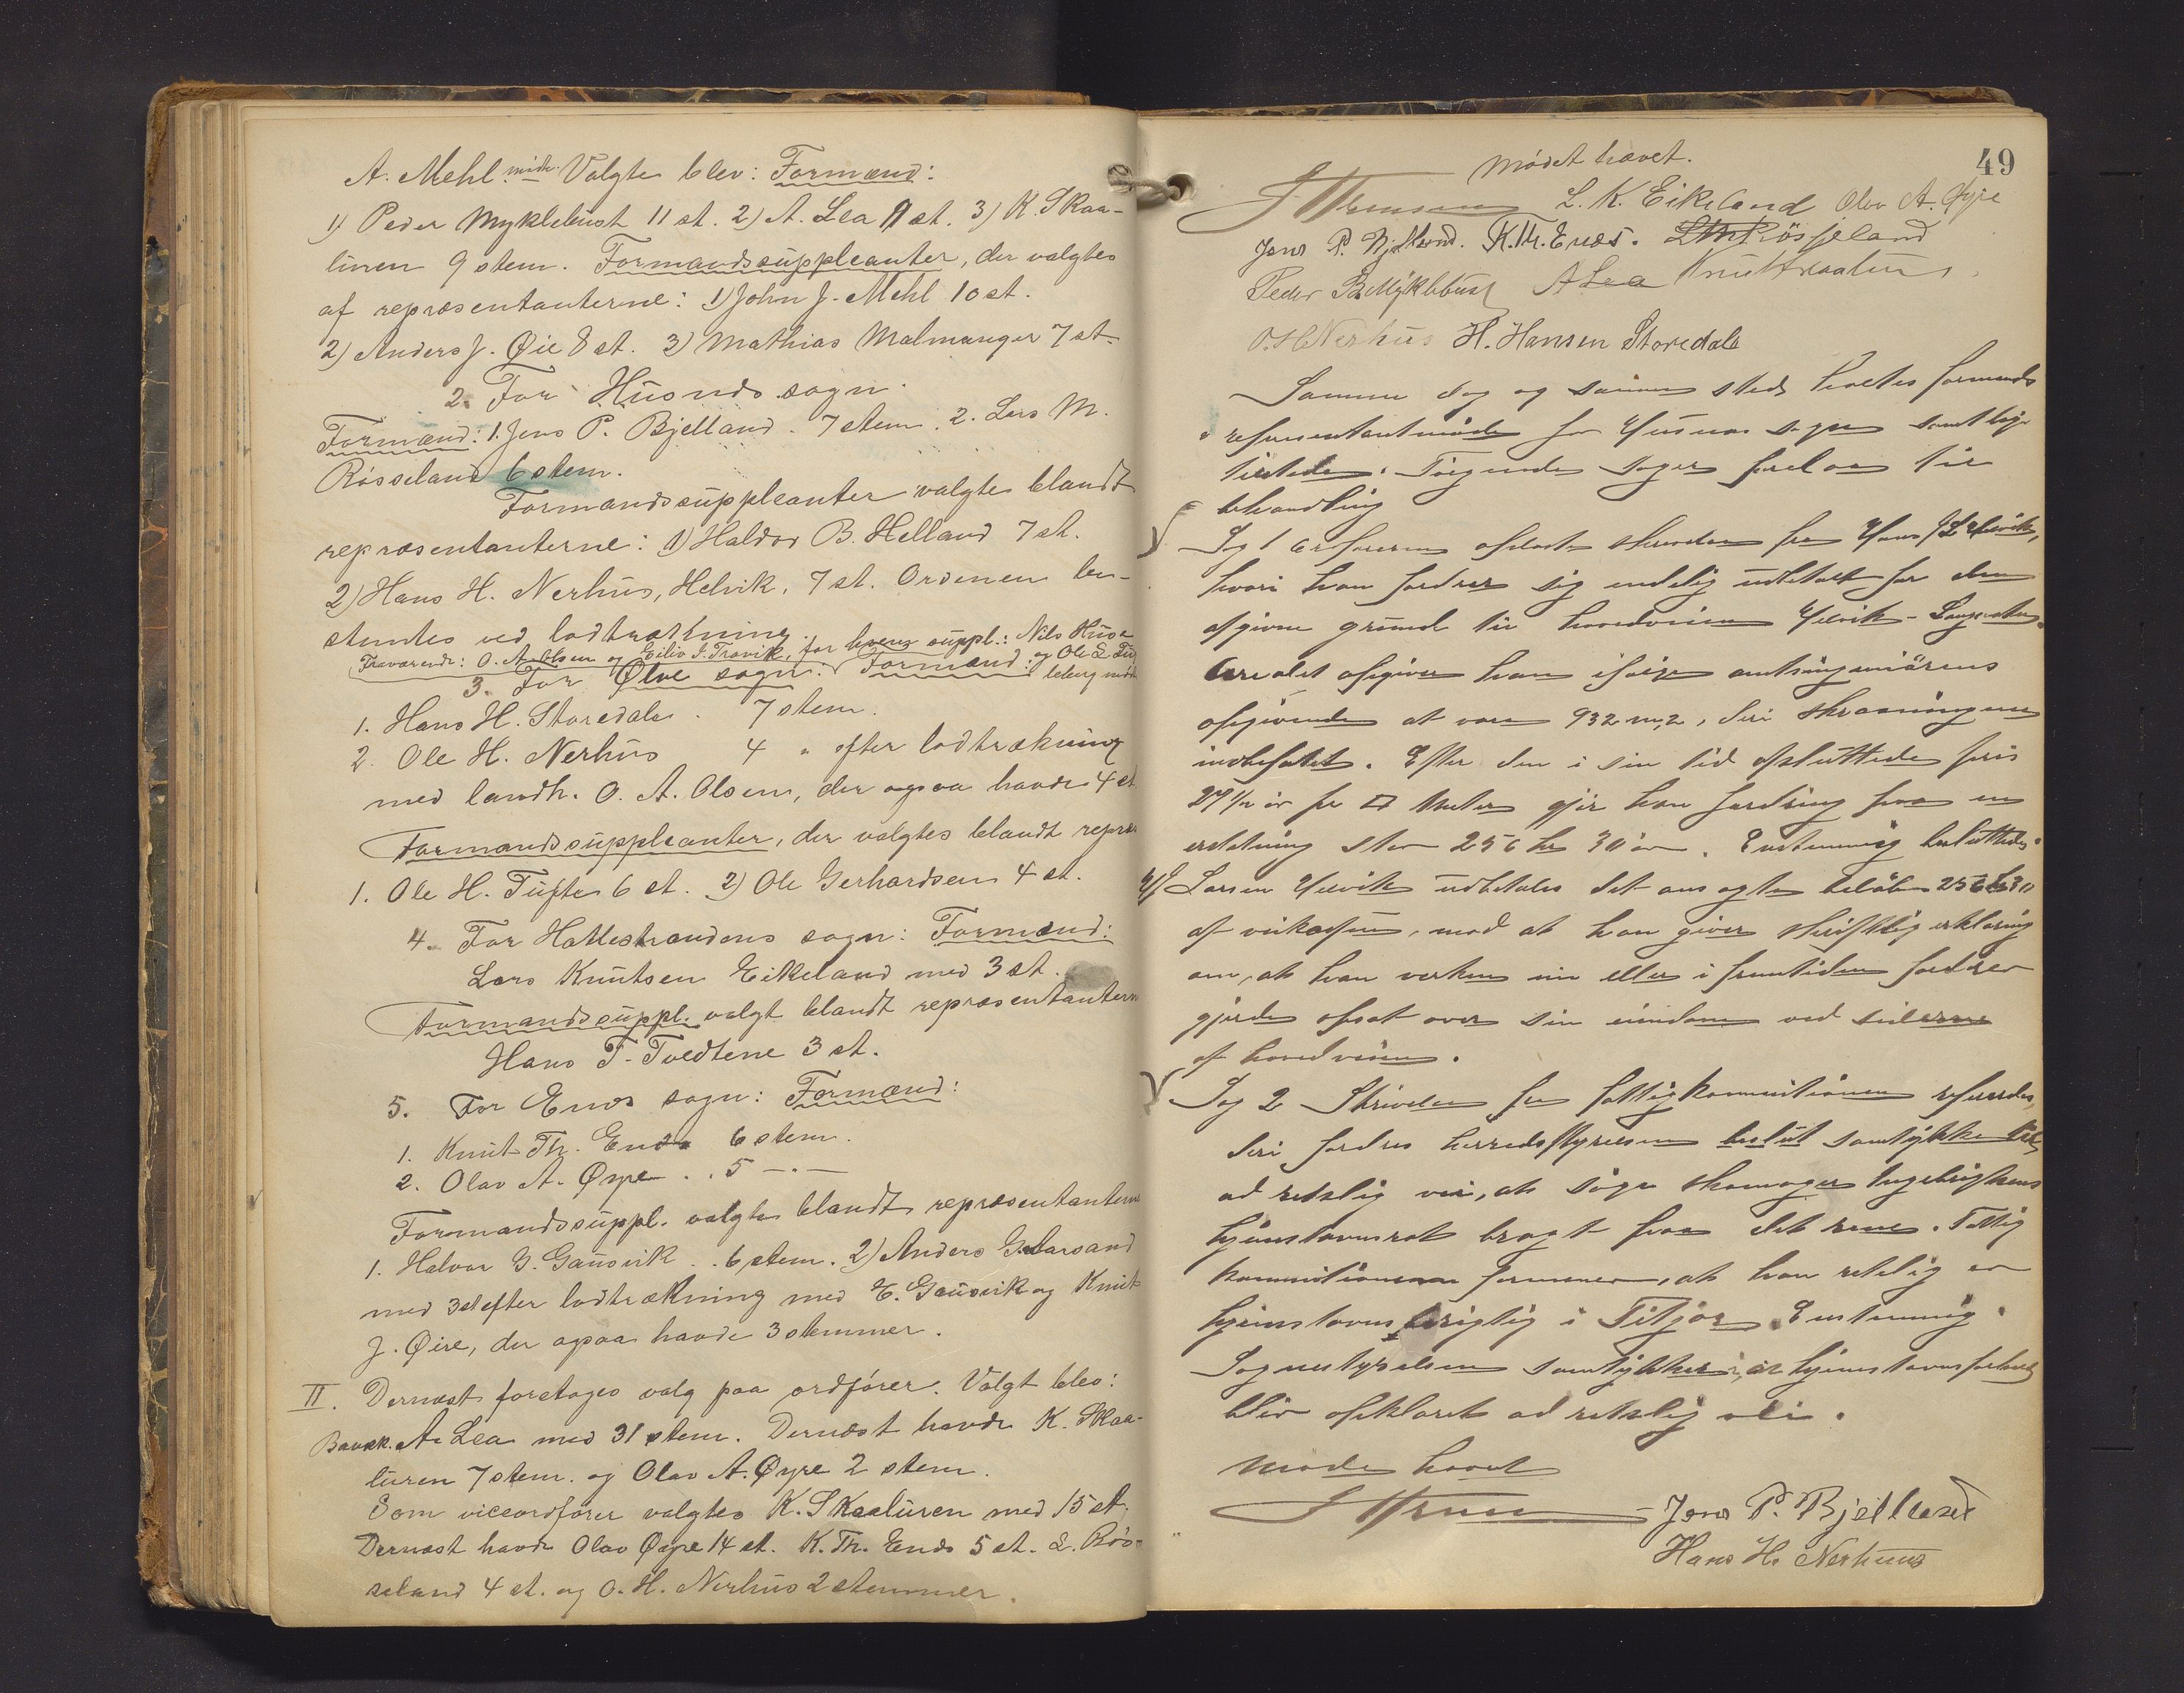 A. Mehl mødte. Valgte blev: Formænd:
1) Peder Myklebust 11 st. 2) A. Lea 9 st. 3) K. Skaa-
luren 9 stem. Formandssuppleanter, der valgtes
af repræsentanterne: 1) John J. Mehl 10 st.
2) Anders J. Øie 8 st. 3) Mathias Malmanger 7 st.
2. For Husnæs sogn.
Formænd: 1. Jens P. Bjelland. 7 stem. 2. Lars M.
Røsseland 6 stem.
Formandssuppleanter valgtes blandt
repræsentanterne: 1) Haldor B. Helland 7 st.
2) Hans H. Nerhus, Helvik, 7 st. Ordenen be-
stemtes ved lodtrækning.
Fraværende: O. A. Olsen og Eiliv J. Travik, for hvem suppl.: Nils Huse
og Ole L.
3. For Ølve sogn: Formænd:
1. Hans H. Storedale. 7 stem.
2. Ole H. Nerhus 4 " efter lodtrækning
med landh. O. A. Olsen, der ogsaa havde 4 st
Formandssuppleanter, der valgtes blandt repræs
1. Ole H. Tufte 6 st. 2) Ole Gerhardsen 4 st.
4. For Hattestrandens sogn: Formænd:
Lars Knutsen Eikeland med 3 st.
Formandssuppl. valgt blandt repræsentantern
Hans T. Tvedtene 3 st.
5. For Enæs sogn: Formænd:
1. Knut Th. Enæs 6 stem.
2. Olav A. Øyre . . 5 — " —
Formandssuppl. valgtes blandt repræsentanterne
1. Halvor G. Gausvik . . 6 stem. 2) Anders
med 3 st efter lodtrækning med E. Gausvik og Knut
J. Øire, der ogsaa havde 3 stemmer.
II. Dernæst foretoges valg paa ordfører. Valgt blev:
A. Lea med 31 stem. Dernæst havde K. Skaa-
luren 7 stem. og Olav A. Øyre 2 stem.
Som viceordfører valgtes K. Skaaluren med 15 st.
Dernæst havde Olav Øyre 14 st. K. Th. Enæs 5 st. L. Røs-
seland 4 st. og O. H. Nerhus 2 stemmer.
49
Mødet hævet.
L. K. Eikeland Olav A. Øyre
Jens P. Bjelland. K. Th. Enæs. L M Røsseland
Peder B Myklebust A Lea Knut Skaaluren
O. H Nerhus H. Hansen Storedale
Samme dag og samme sted holdtes formands
repræsentantmøde for Husnæs sogn samtlige
tilstede. Følgende sager forelaa til
behandling
Sag 1 Ordføreren oplæste skrivelse fra Hans L. Helvik,
hvori han fordrer sig endelig udbetalt for den
afgivne grund til hovedveien Helvik -
Arealet opgiver han ifølge amtsingeniørens
opgivende at være 932 m2, deri skraaningerne
indbefattet. Efter den i sin tid afsluttede pris
27½ ør pr □ Meter gjør han fordring paa en
erstatning stor 256 kr 30 ør. Enstemmig besluttedes:
H. Larsen Helvik udbetales det ansøgte beløb 256 kr 30
af veikassen, mod at han giver skriftlig erklæring
om, at han verken nu eller i fremtiden fordrer
gjerde opsat over sin eiendom ved siderne
af hovedveien.
Sag 2 Skrivelse fra fattigkommissionen refereredes,
deri fordres herredsstyrelsens samtykke til
ad retslig vei, at søge skomager Ingebrigtsens
hjemstavnsret bragt paa det rene. Fattig
kommissionen formener, at han retslig er
hjemstavnsberigtig i Fitjar. Enstemmig:
Sognestyrelsen samtykker i, at hjemstavnsforhold
bliv opklaret ad retslig vei.
Møde hævet
Jens P. Bjelland
Hans H. Nerhuus